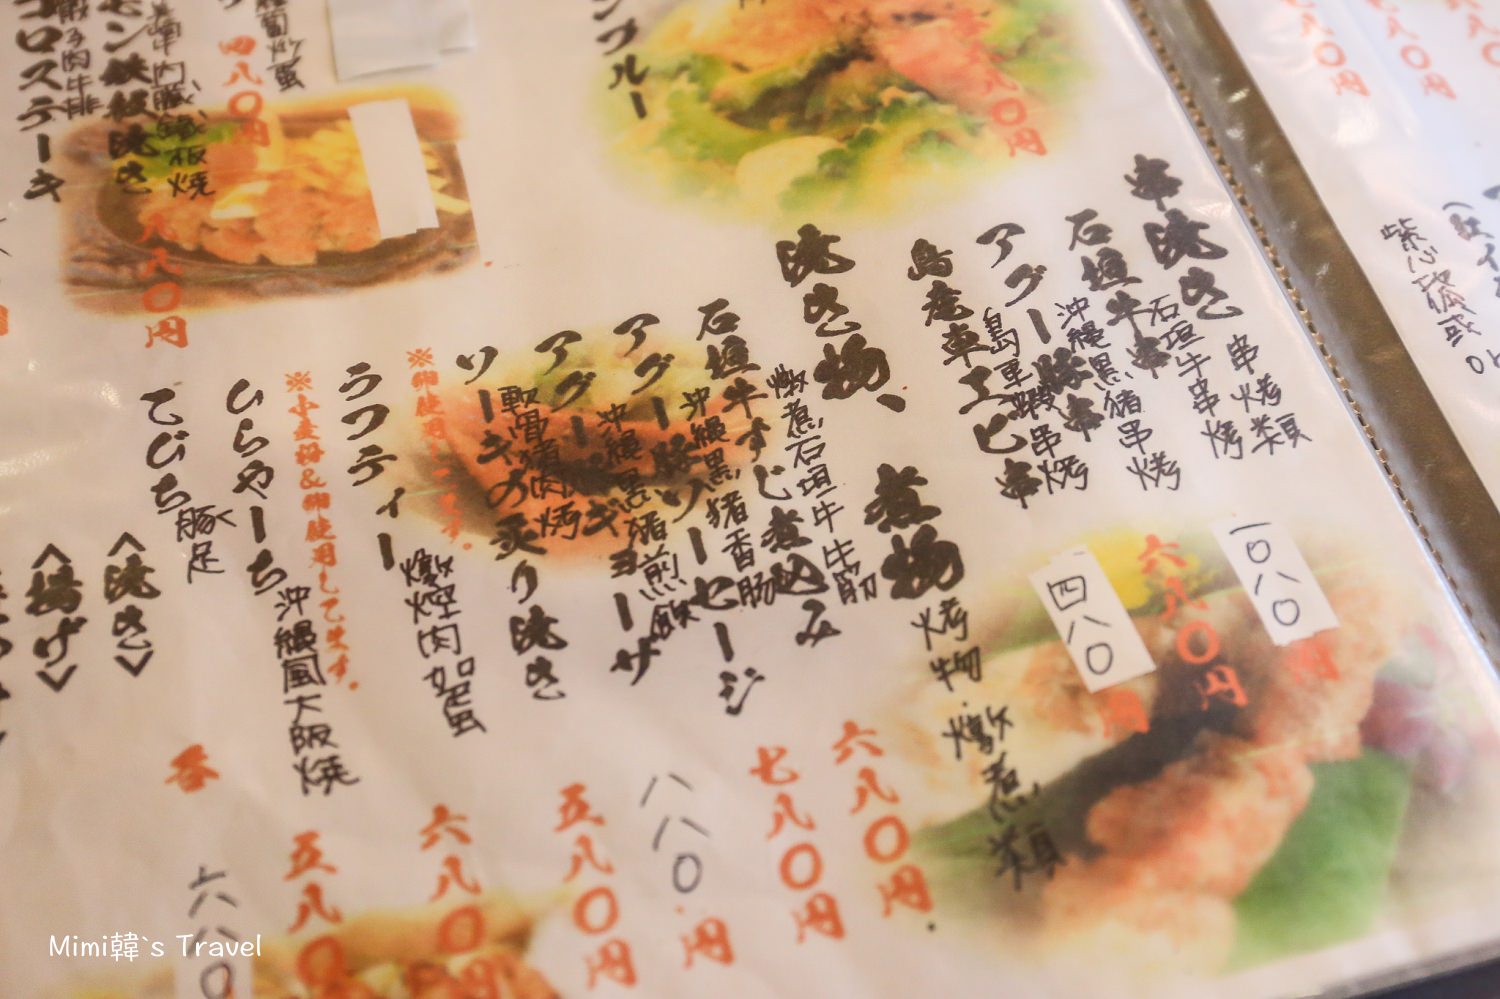 串焼き
串烤類
石垣牛串
石垣牛串烤
一〇八〇
アグー豚串
沖繩黑豬串烤
六八〇円
島老車エビ串
島車蝦串烤
四八〇
円
焼き物、煮物
烤物.燉煮類
石垣牛すじ煮込み
燉煮石垣牛牛筋
六八〇円
アグー豚ソーセージ
沖繩黑豬香腸
七八〇円
アグー
ギョーザ
沖繩黑豬煎餃
八八〇円
ソーキの炙り焼き
軟骨豬肉烤
五八〇円
ラフティー
燉煙肉加蛋
六八〇
ひらやーち
沖繩風大阪燒
※小麦粉&卵使用してます。
五八〇
てびち
豚足
<焼き>
<揚げ>
各
六八〇
ンプルー
八〇円
四八〇円
鉄板焼き
鐵板燒
八八〇円
ロステーキ
肉牛排
紫心
or
Mimi韓`s Travel